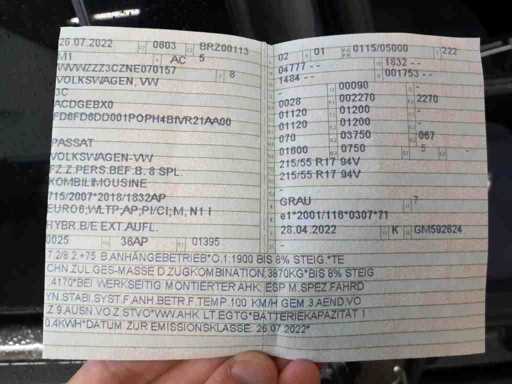 26.07.2022 0603 BRZ00113
M1 AC 5
WVWZZZ3CZNE070157 8
VOLKSWAGEN, VW
3C
ACDGEBX0
PASSAT
VOLKSWAGEN-VW
FZ.Z.PERS.BEF.B. 8 SPL.
KOMBILIMOUSINE
715/2007*2018/1832AP
EURO6;WLTP;AP;PI/CI; M, N1 I
HYBR.B/E EXT.AUFL.
0025 36AP 01395
02 01 0115/05000 222
04777 - - 1832 - -
1484 - - 001753 - -
- 00090 -
0028 002270 2270
01120 01200 -
01120 01200 -
070 03750 067
01600 0750 5 -
215/55 R17 94V
215/55 R17 94V
-
GRAU 7
e1*2001/116*0307*71
28.04.2022 K GM592624
-
7.2/8.2:+75 B.ANHÄNGEBETRIEB*O.1:1900 BIS 8% STEIG.*TE
CHN.ZUL.GES-MASSE D.ZUGKOMBINATION:3870KG*BIS 8% STEIG
.:4170*BEI WERKSEITIG MONTIERTER AHK, ESP M.SPEZ.FAHRD
YN.STABI.SYST.F.ANH.BETR.F.TEMP.100 KM/H GEM 3.AEND.VO
Z 9.AUSN.VO.Z.STVO*VW.AHK LT.EGTG*BATTERIEKAPAZITÄT 1
0.4KWH*DATUM ZUR EMISSIONSKLASSE: 26.07.2022*